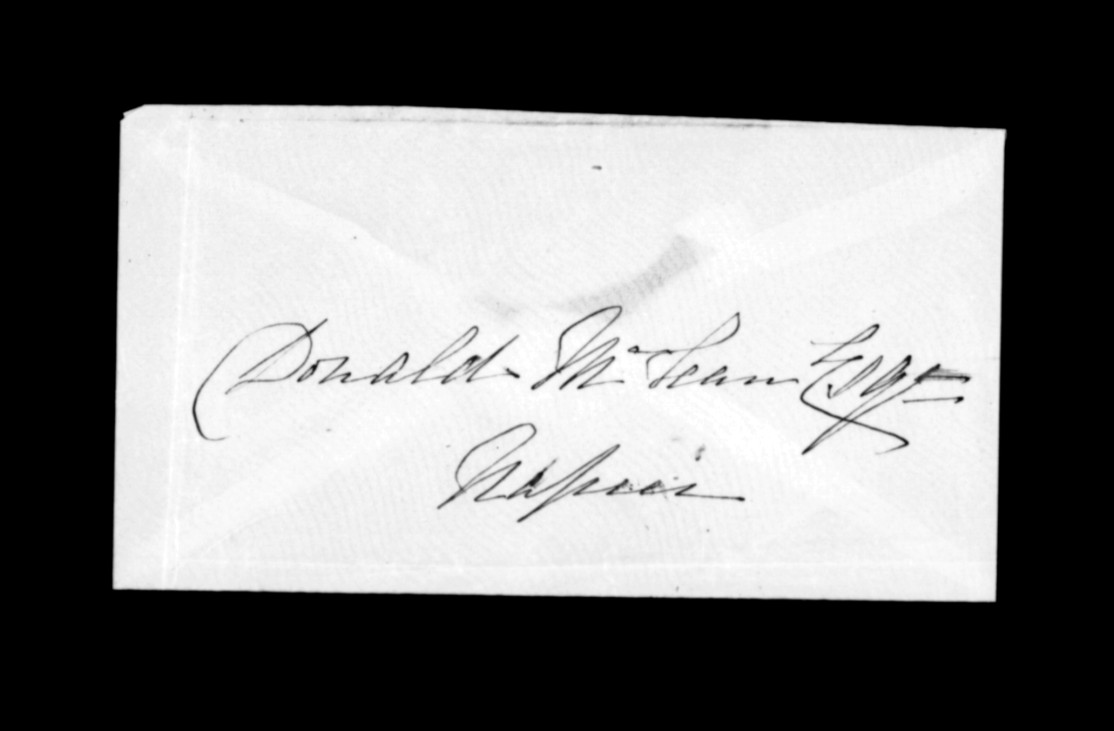 Donald McLean Esqr
Napier